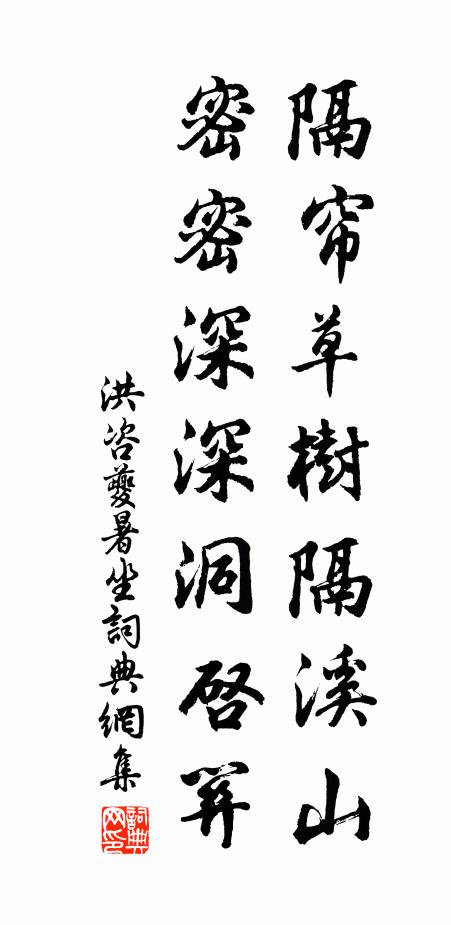 隔帘草樹隔溪山
密密深深洞啓關
洪咨夔暑坐詞典網集
詞典
网印